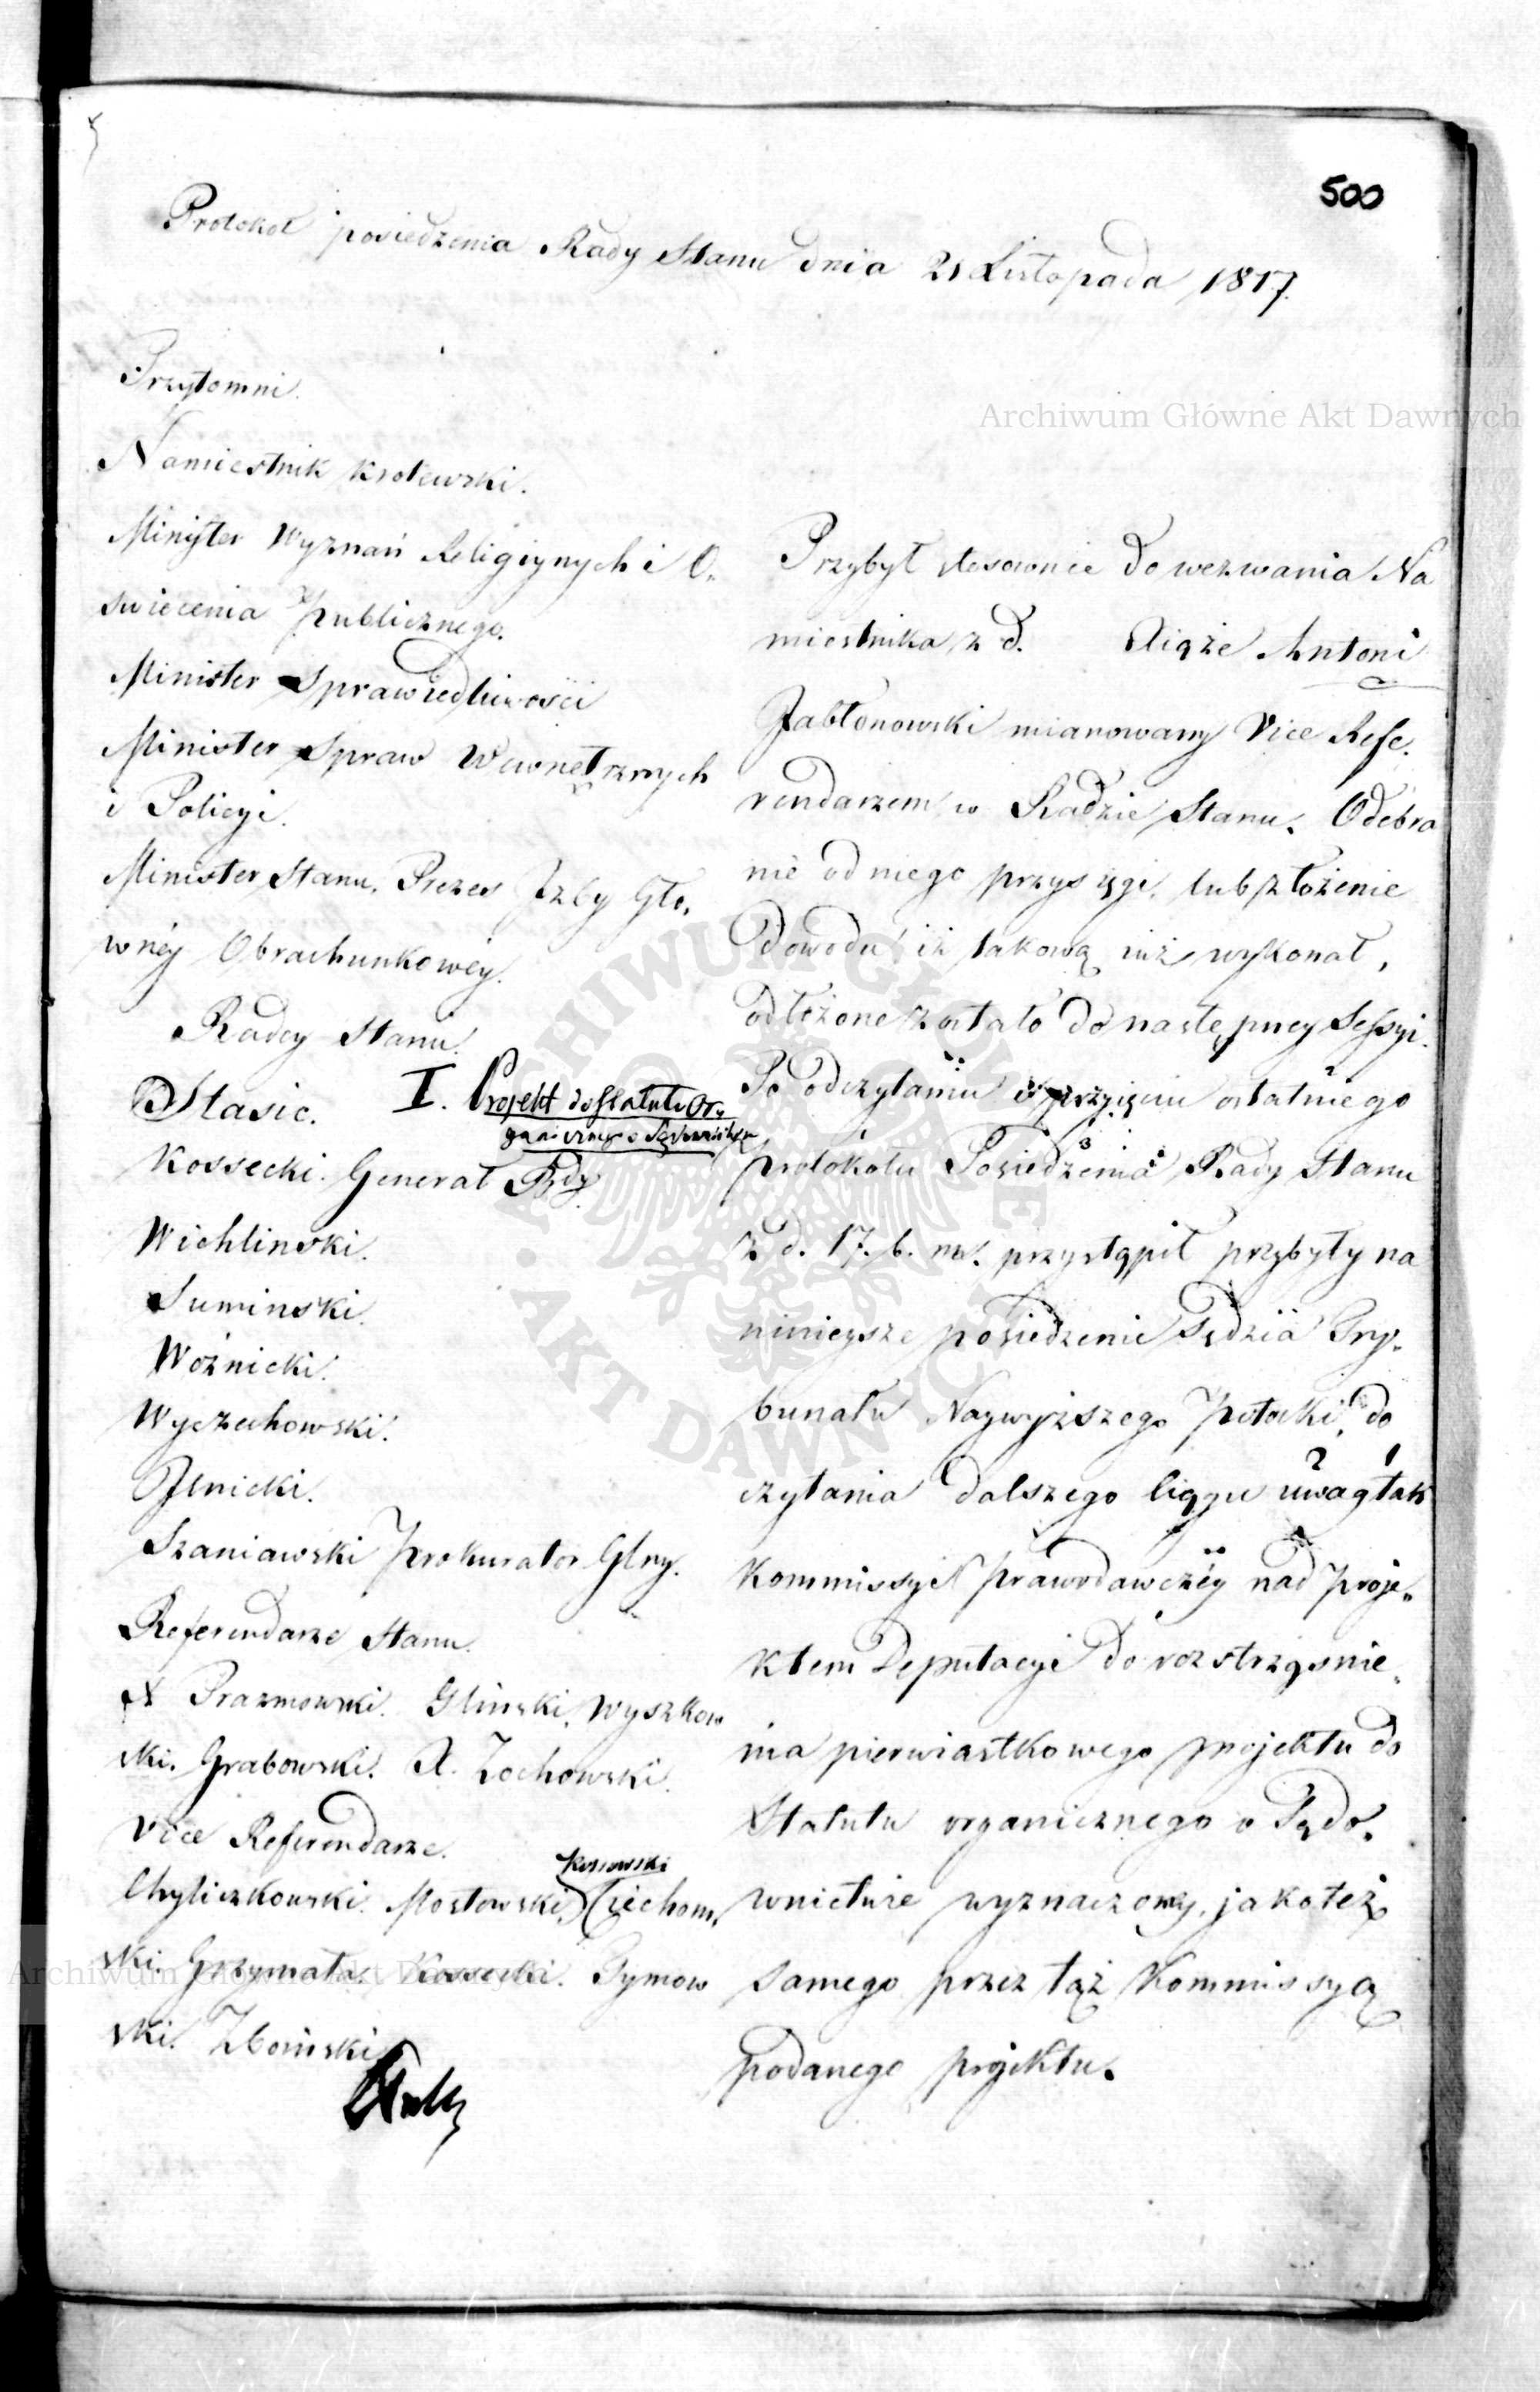 500
Protokoł posiedzenia Rady Stanu dnia 21 Listopada 1817.
Przytomni.
Namiestnik Krolewski.
Minister Wyznań Religiynych i O,
swiecenia Publicznego.
Minister Sprawiedliwości
Minister Spraw Wewnętrznych
i Policyi.
Minister Stanu, Prezes Jzby Gło,
wnéy Obrachunkowéy.
Radcy Stanu.
Stasic.
I. Projekt do Statutu Or,
ganicznego o Sądownictwie
Kossecki. Generał Bdy.
Wichlinski.
Suminski.
Woźnicki.
Wyczechowski.
Jlnicki.
Szaniawski Prokurator Glny.
Referendarze Stanu.
X Prazmowski. Glinski, Wyszkow
ski. Grabowski. X. Zochowski.
Vice Referendarze.
Kossowski
Chyliczkowski. Mostowski, Ciechom,
ski. Grzymała. Kossecki. Tymow
ski. Zboinski
Przybył stosownie do wezwania Na
miestnika z d. Xiąże Antoni
Jabłonowski mianowany Vice Refe,
rendarzem w Radzie Stanu. Odebra
nie od niego przysięgi, lub złożenie
Dowodu iż takową iuż wykonał,
odłożone zostało do następney Sessyi.
Po odczytaniu i przyięciu ostatniego
protokołu Posiedzenia Rady Stanu
z d. 17. b. m. przystąpił przybyły na
ninieysze posiedzenie Sędzia Try,
bunału Naywyższego Potocki, do
czytania dalszego ciągu uwag tak
Kommissyi Prawodawczéy nad proje,
ktem Deputacyi do rozstrząśnie,
nia pierwiastkowego projektu do
Statutu organicznego o Sądo,
wnictwie wyznaczoney, jakoteż
samego przez taż Kommissyą
podanego projektu.
Archiwum Główne Akt Dawnych
ARCHIWUM GŁÓWNE AKT DAWNYCH